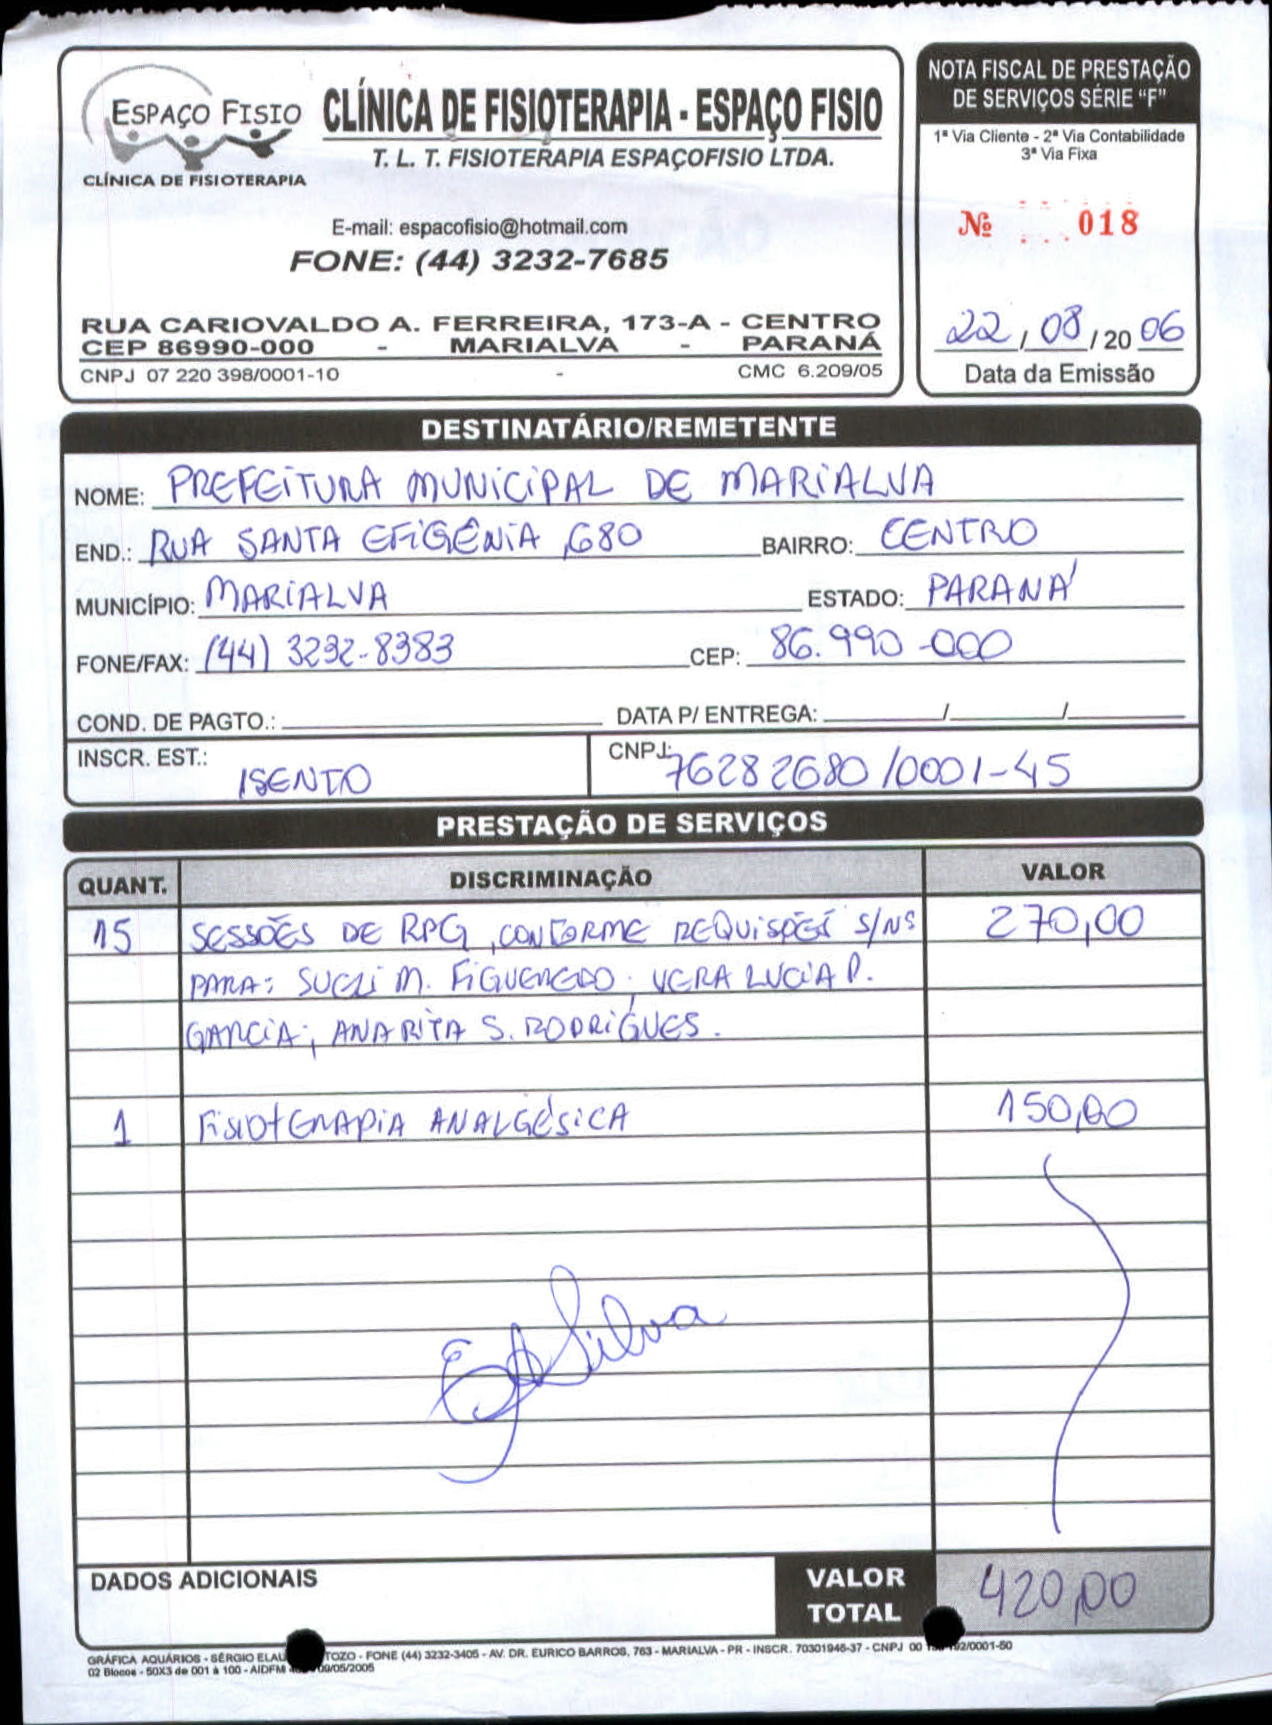 ESPAÇO FISIO
CLÍNICA DE FISIOTERAPIA
CLÍNICA DE FISIOTERAPIA - ESPAÇO FISIO
T. L. T. FISIOTERAPIA ESPAÇOFISIO LTDA.
E-mail: espacofisio@hotmail.com
FONE: (44) 3232-7685
RUA CARIOVALDO A. FERREIRA, 173-A - CENTRO
CEP 86990-000 - MARIALVA - PARANÁ
CNPJ 07 220 398/0001-10 - CMC 6.209/05
NOTA FISCAL DE PRESTAÇÃO
DE SERVIÇOS SÉRIE “F”
1ª Via Cliente - 2ª Via Contabilidade
3ª Via Fixa
Nº 018
22/08/2006
Data da Emissão
DESTINATÁRIO/REMETENTE
NOME: PREFEITURA MUNICIPAL DE MARIALVA
END.: RUA SANTA EFIGÊNIA, 680 BAIRRO: CENTRO
MUNICÍPIO: MARIALVA ESTADO: PARANÁ
FONE/FAX: (44) 3232-8383 CEP: 86.990-000
COND. DE PAGTO.: DATA P/ ENTREGA: / /
INSCR. EST.: ISENTO CNPJ: 76282680/0001-45
PRESTAÇÃO DE SERVIÇOS
QUANT. DISCRIMINAÇÃO VALOR
15 SESSÕES DE RPG, CONFORME REQUISÕES S/NS 270,00
PARA: SUELI M. FIGUEREDO; VERA LUCIA P.
GARCIA; ANA RITA S. RODRIGUES.
1 FISIOTERAPIA ANALGÉSICA 150,00
Silva
DADOS ADICIONAIS
VALOR TOTAL 420,00
GRÁFICA AQUÁRIOS - SÉRGIO TOZO - FONE (44) 3232-3405 - AV. DR. EURICO BARROS, 763 - MARIALVA - PR - INSCR. 70301946-37 - CNPJ 00 /0001-50
02 Blocos - 50X3 de 001 à 100 - AIDFM /05/2005